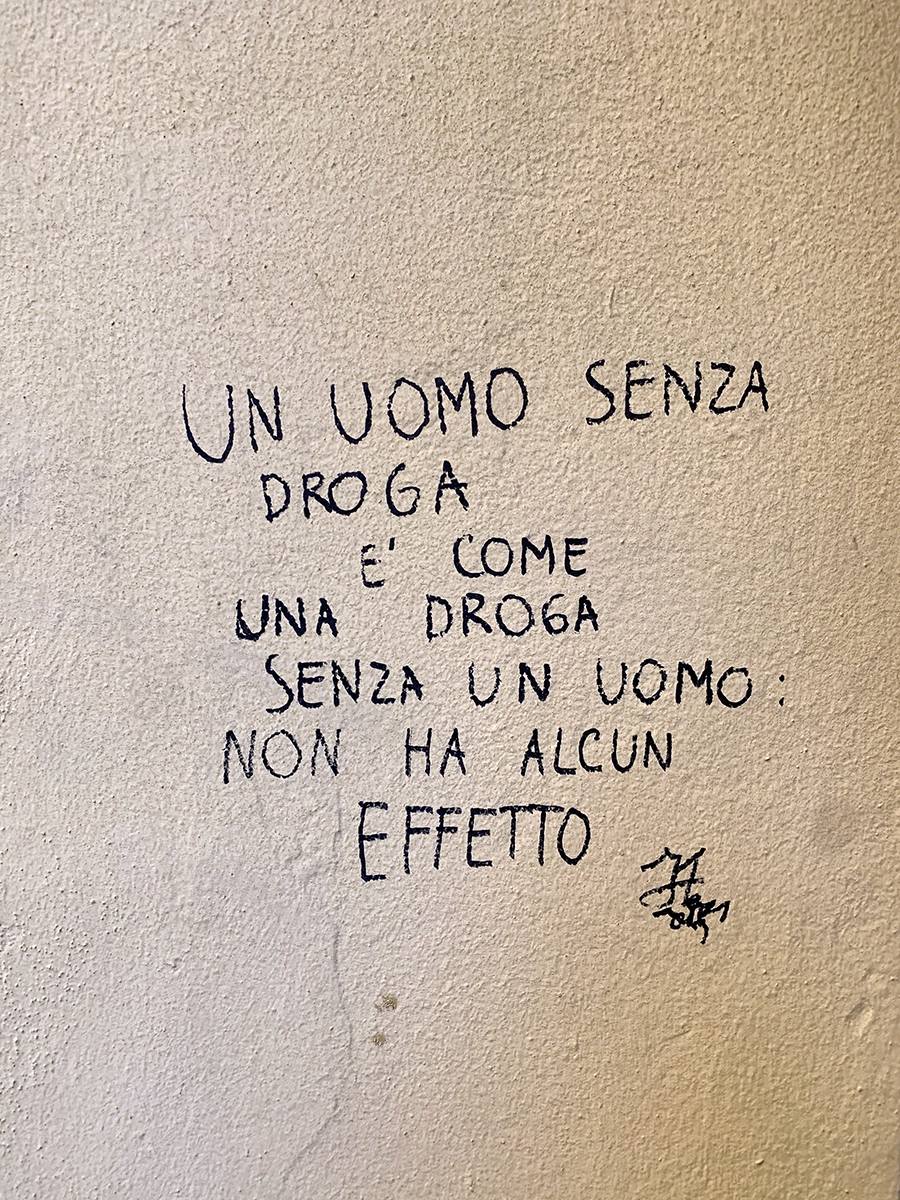 UN UOMO SENZA
DROGA
E' COME
UNA DROGA
SENZA UN UOMO:
NON HA ALCUN
EFFETTO